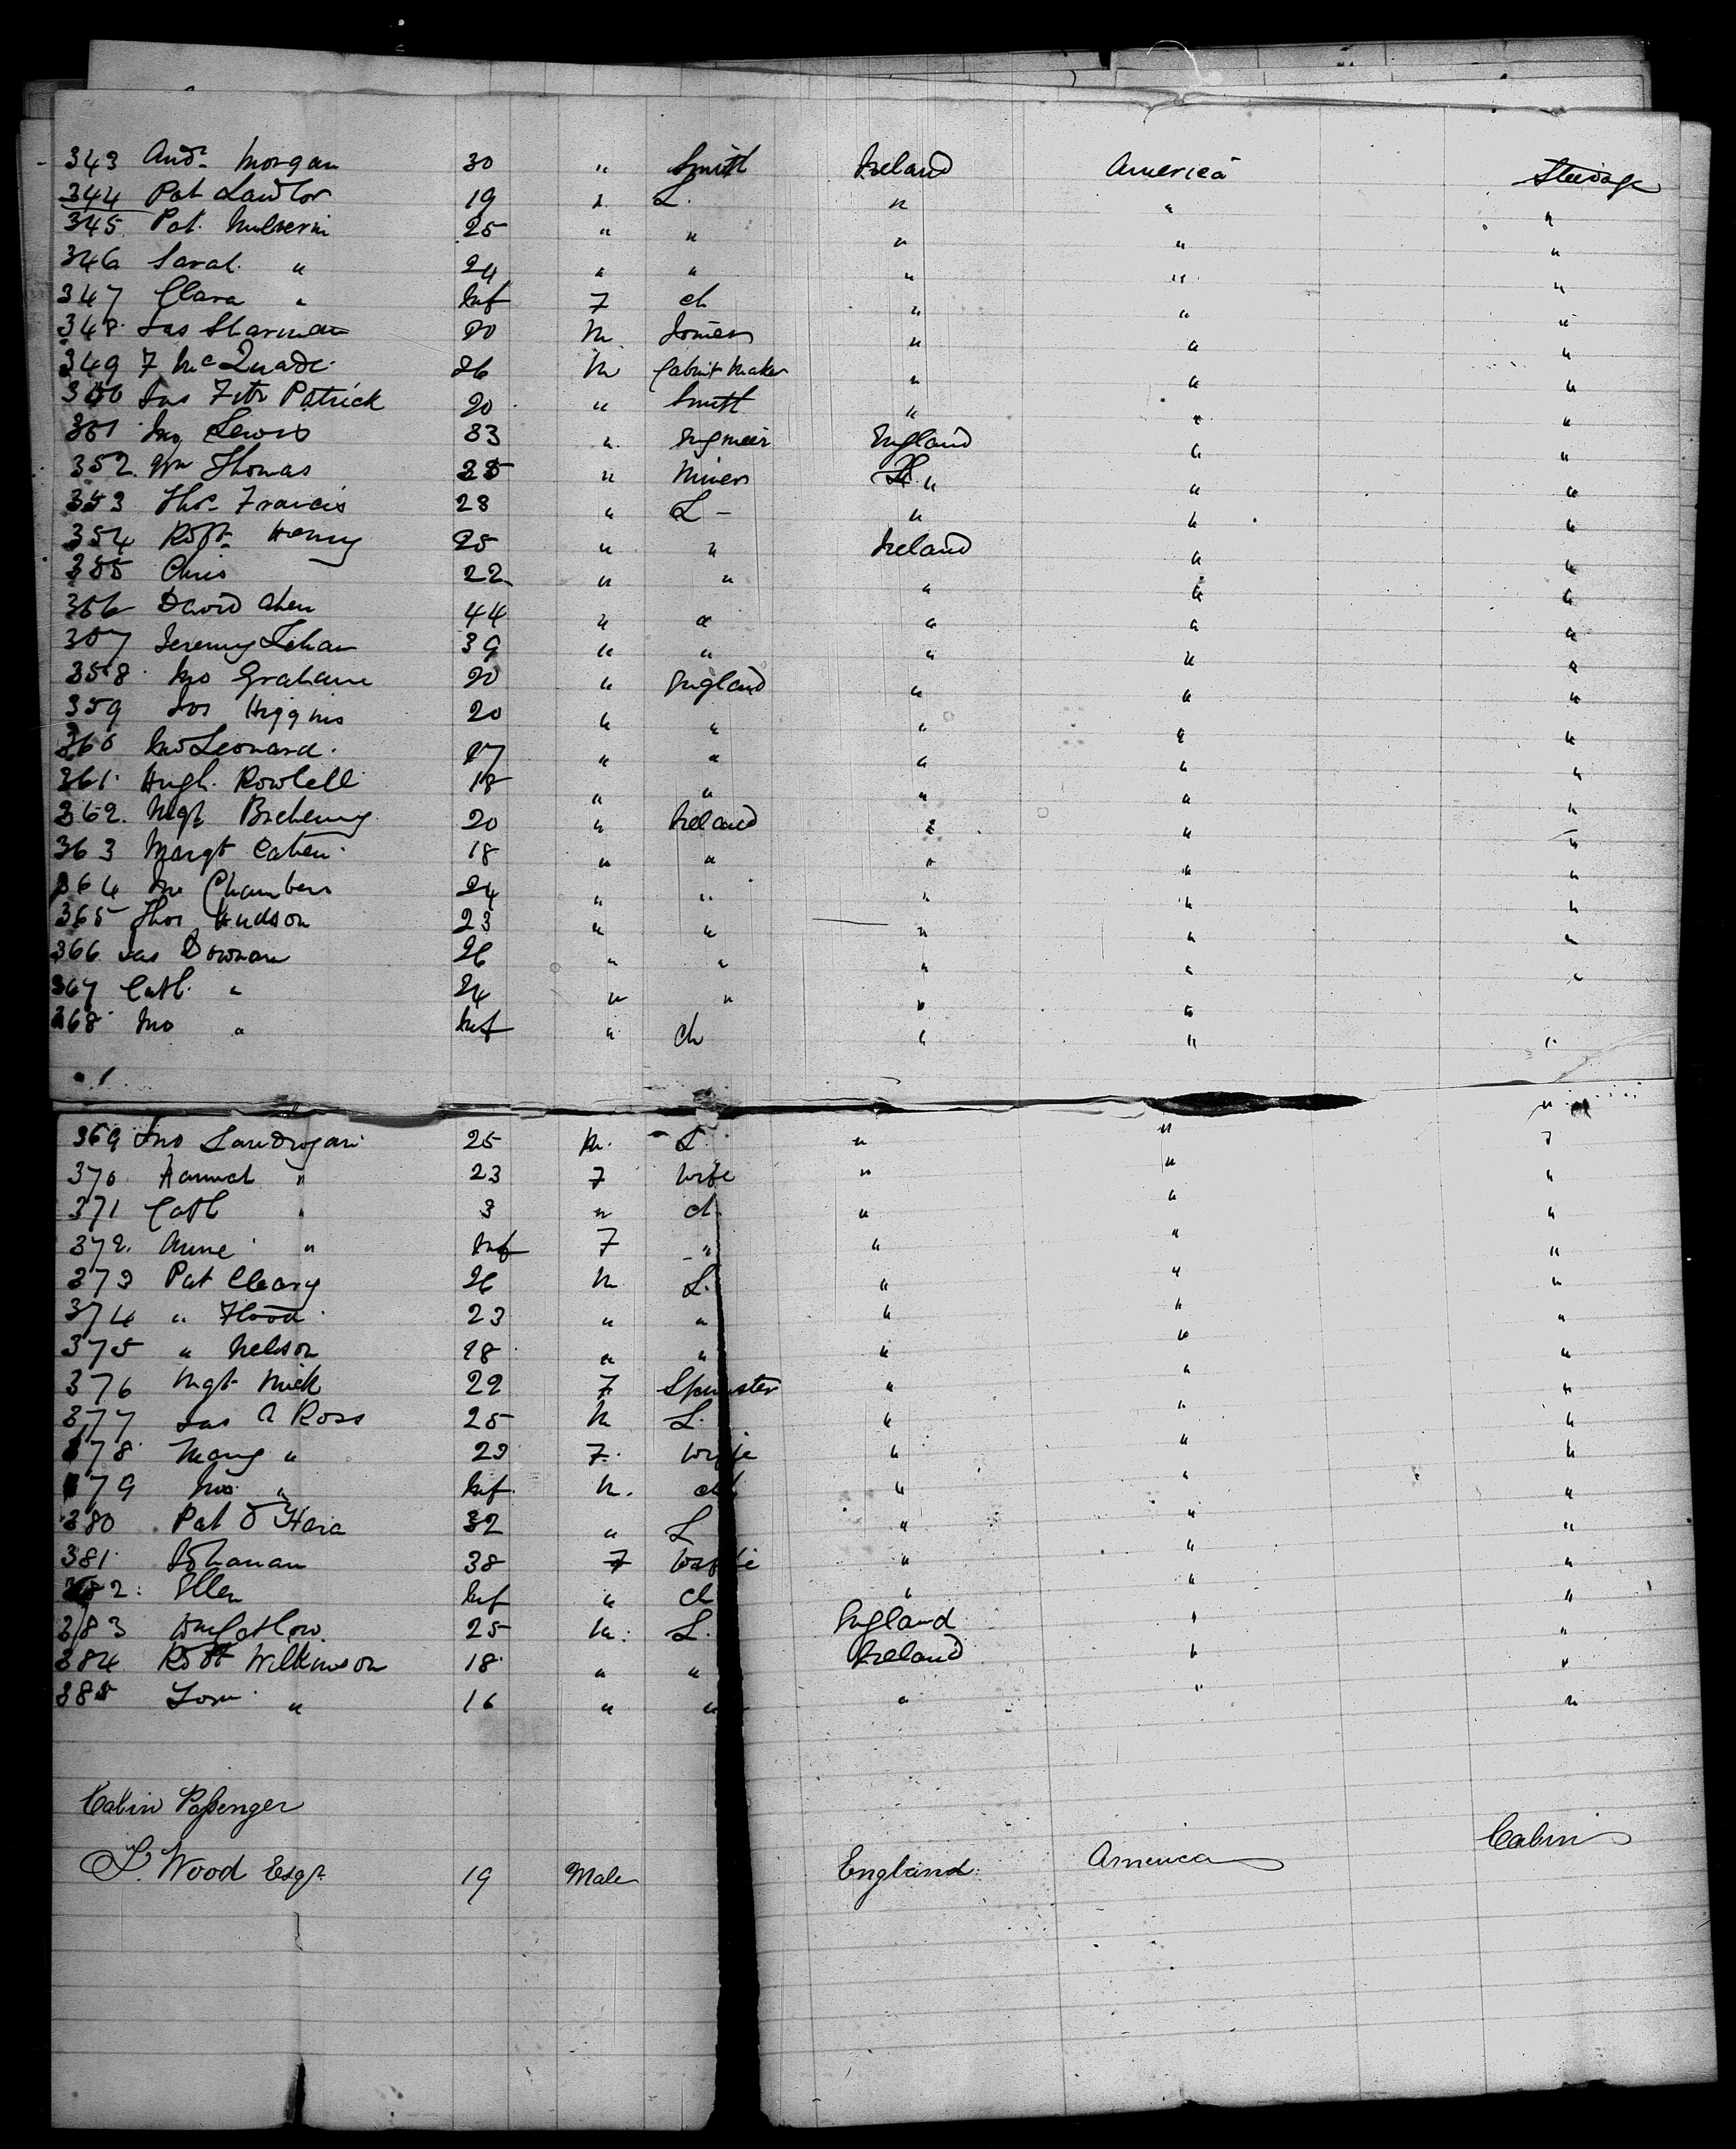 343 Andw Morgan 30 " Smith Ireland America Steerage
344 Pat Lawlor 19 " L. " " "
345 Pat. Mulverin 25 " " " " "
346 Sarah " 24 " " " " "
347 Clara " Inf F ch " " "
348 Jas Sharman 20 M. Joiner " " "
349 F McQuade 26 M Cabint Maker " " "
350 Jas Fitz Patrick 20 " Smith " " "
351 Jno Lewis 33 " Engineer England " "
352. Wm Thomas 25 " Miner " " "
353 Thos Francis 23 " L - " " "
354 Robt Henry 25 " " Ireland " "
355 Chris 22 " " " " "
356 David 44 " " " " "
357 Jeremy Lehan 39 " " " " "
358 Jno Graham 20 " England " " "
359 Jos Higgins 20 " " " " "
360 Jno Leonard. 17 " " " " "
361 Hugh. 18 " " " " "
362. Mgt 20 " Ireland " " "
363 Margt 18 " " " " "
364 Jno Chambers 24 " " " " "
365 Thos Hudson 23 " " " " "
366 Jas Downan 26 " " " " "
367 Cath. " 24 " " " " "
368 Jno " Inf " ch " " "
369 Jno Landrogan 25 M. L. " " "
370 Hannah " 23 F wife " " "
371 Cath " 3 " ch " " "
372. Anne " Inf F " " " "
373 Pat Cleary 26 M L. " " "
374 " Flood 23 " " " " "
375 " Nelson 28 " " " " "
376 Mgt Mick 22 F Spinster " " "
377 Jas A Ross 25 M L. " " "
378 Mary " 23 F. wife " " "
379 Jno " Inf. M. ch " " "
380 Pat O'Hara 32 " L " " "
381 Johanan 38 F wife " " "
382: Ellen Inf " ch " " "
383 25 M. L. England " "
384 Robt Wilkinson 18 " " Ireland " "
385 Tom " 16 " " " " "
Cabin Passenger
S. Wood Esqr 19 Male England America Cabin